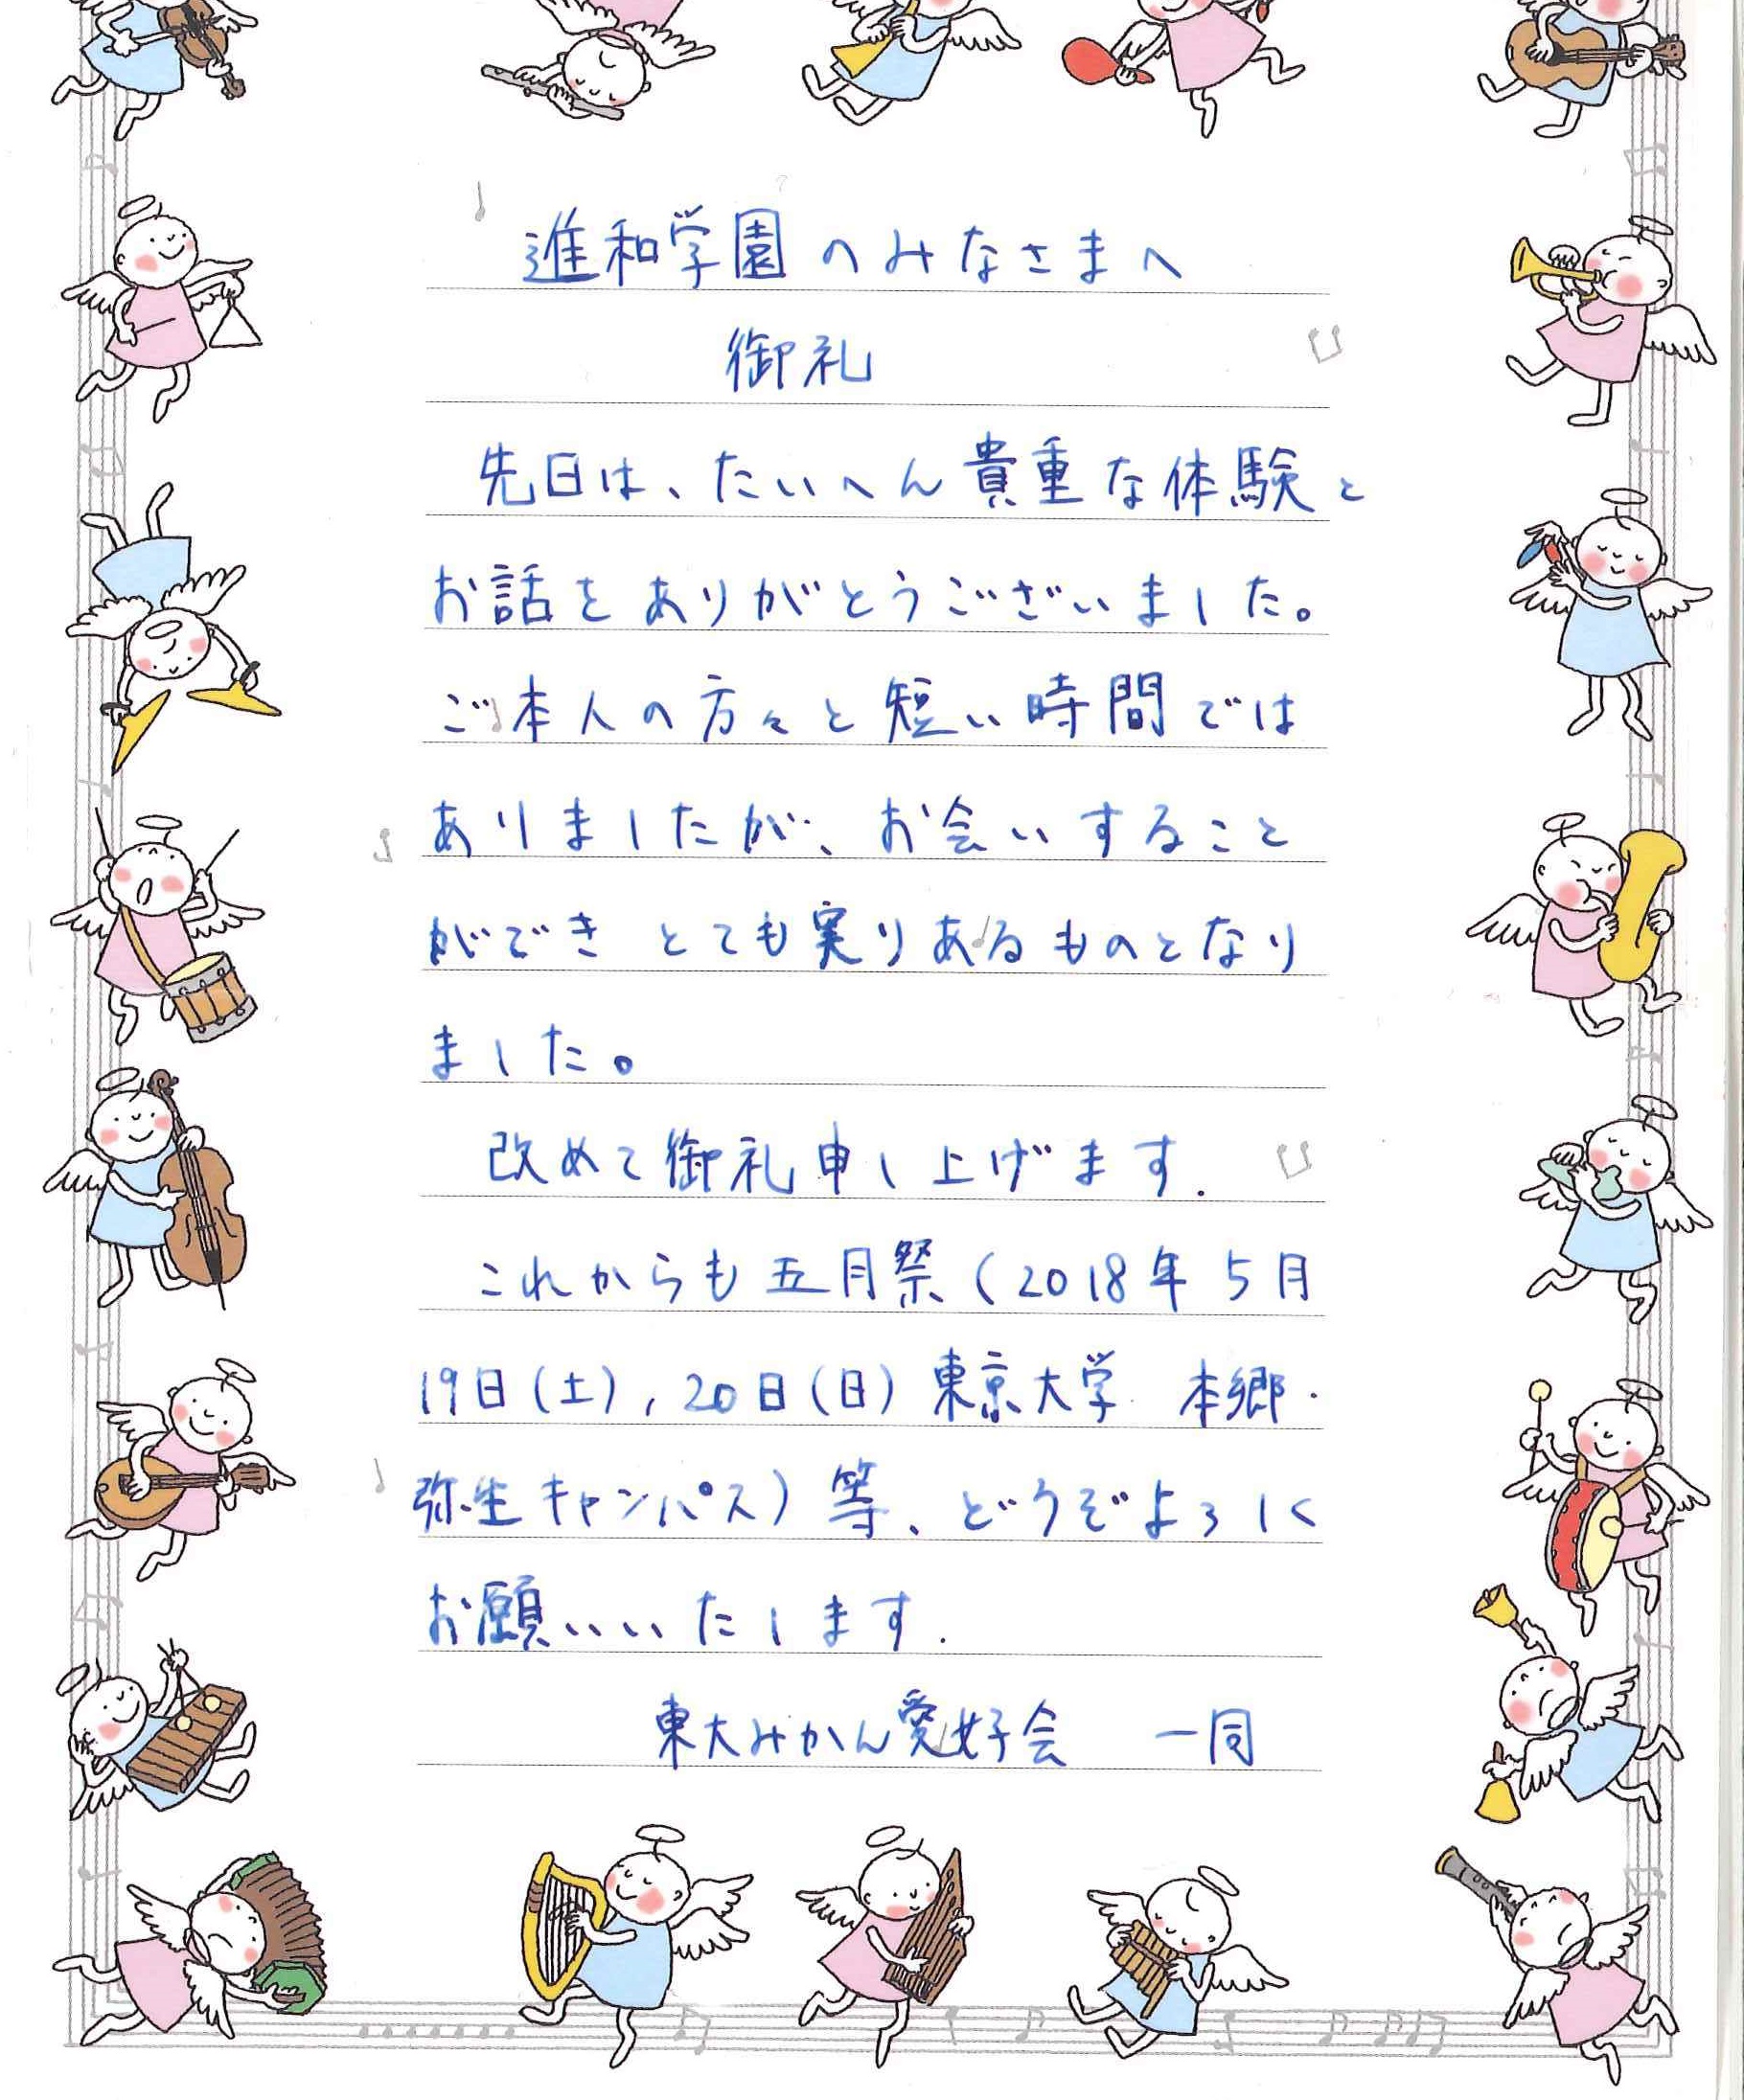 進和学園のみなさまへ
御礼
先日は、たいへん貴重な体験と
お話をありがとうございました。
ご本人の方々と短い時間では
ありましたが、お会いすること
ができ とても実りあるものとなり
ました。
改めて御礼申し上げます.
これからも五月祭(2018年5月
19日(土),20日(日)東京大学 本郷・
弥生キャンパス)等、どうぞよろしく
お願いいたします.
東大みかん愛好会 一同